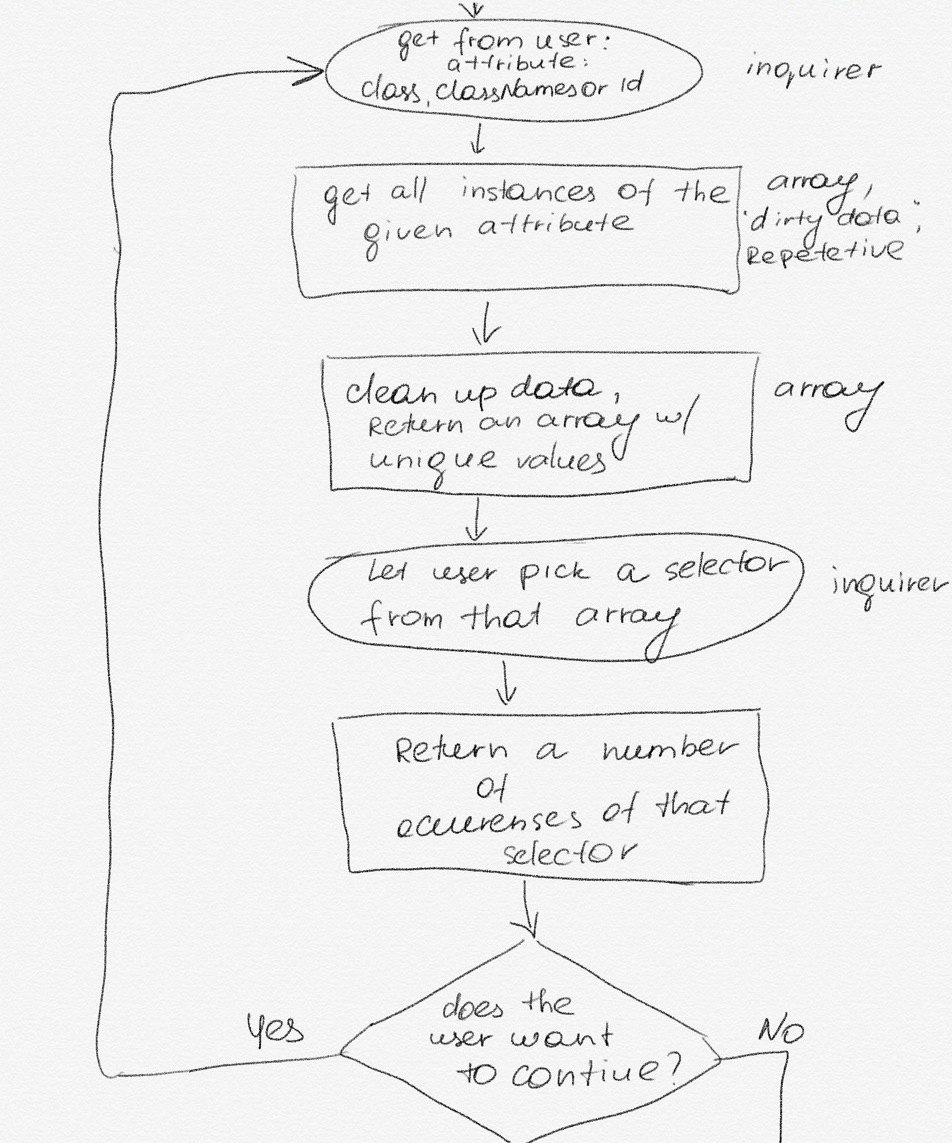 get from user:
attribute:
class, classNames or Id
inquirer
get all instances of the
given attribute
array,
"dirty data",
Repetetive
clean up data,
Return an array w/
unique values
array
Let user pick a selector
from that array
inquirer
Return a number
of
occurenses of that
selector
does the
user want
to contiue?
Yes
No